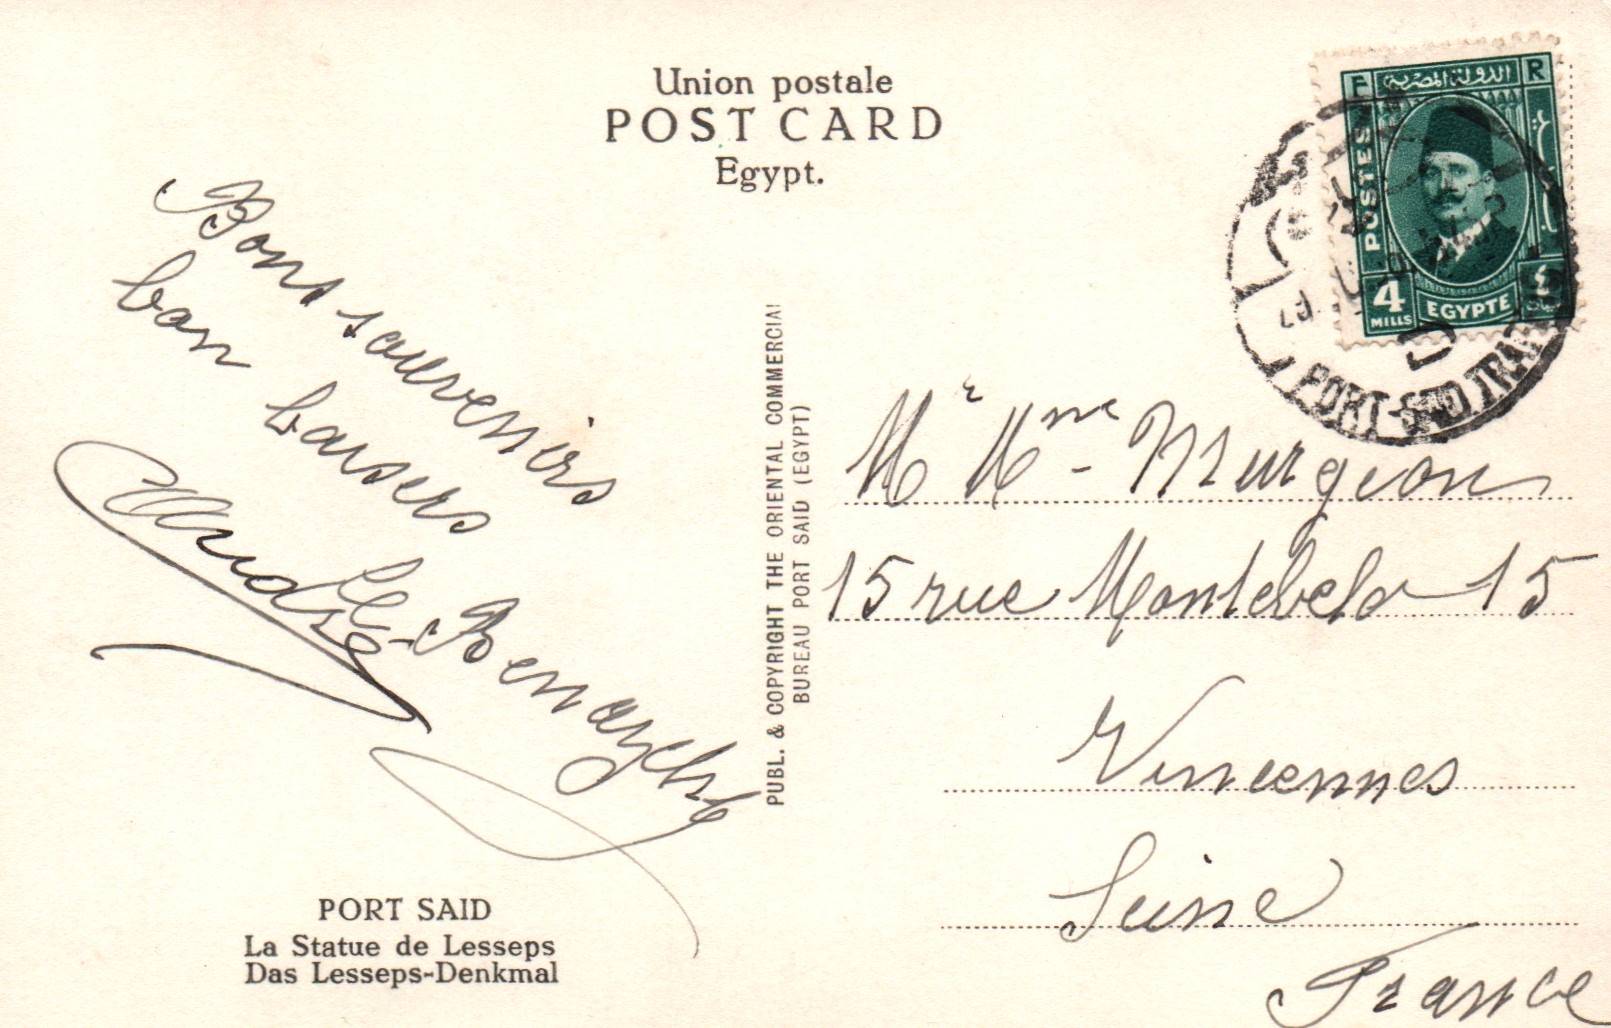 Union postale
POST CARD
Egypt.
F الدولة المصرية R
POSTES
4
MILLS
EGYPTE
٤
PORT-SAID.TRAF
Bons souvenirs
bon baisers
André
PUBL. & COPYRIGHT THE ORIENTAL COMMERCIAL
BUREAU PORT SAID (EGYPT)
Mr Mme - Murgeon
15 rue Montebelo 15
Vincennes
Seine
France
PORT SAID
La Statue de Lesseps
Das Lesseps-Denkmal